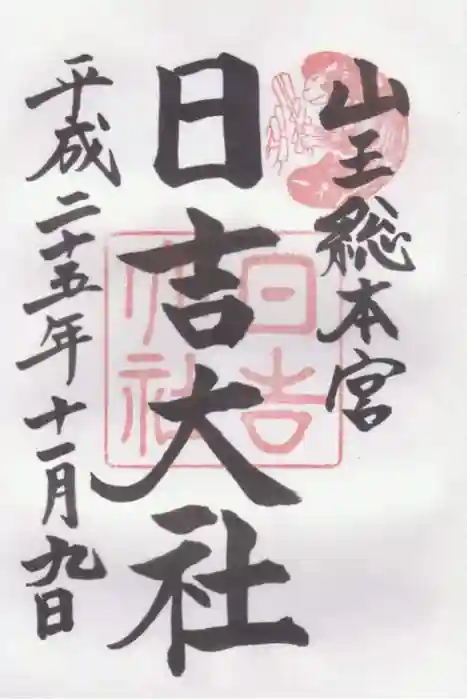 山王総本宮
日吉大社
日吉大社
平成二十五年十一月九日